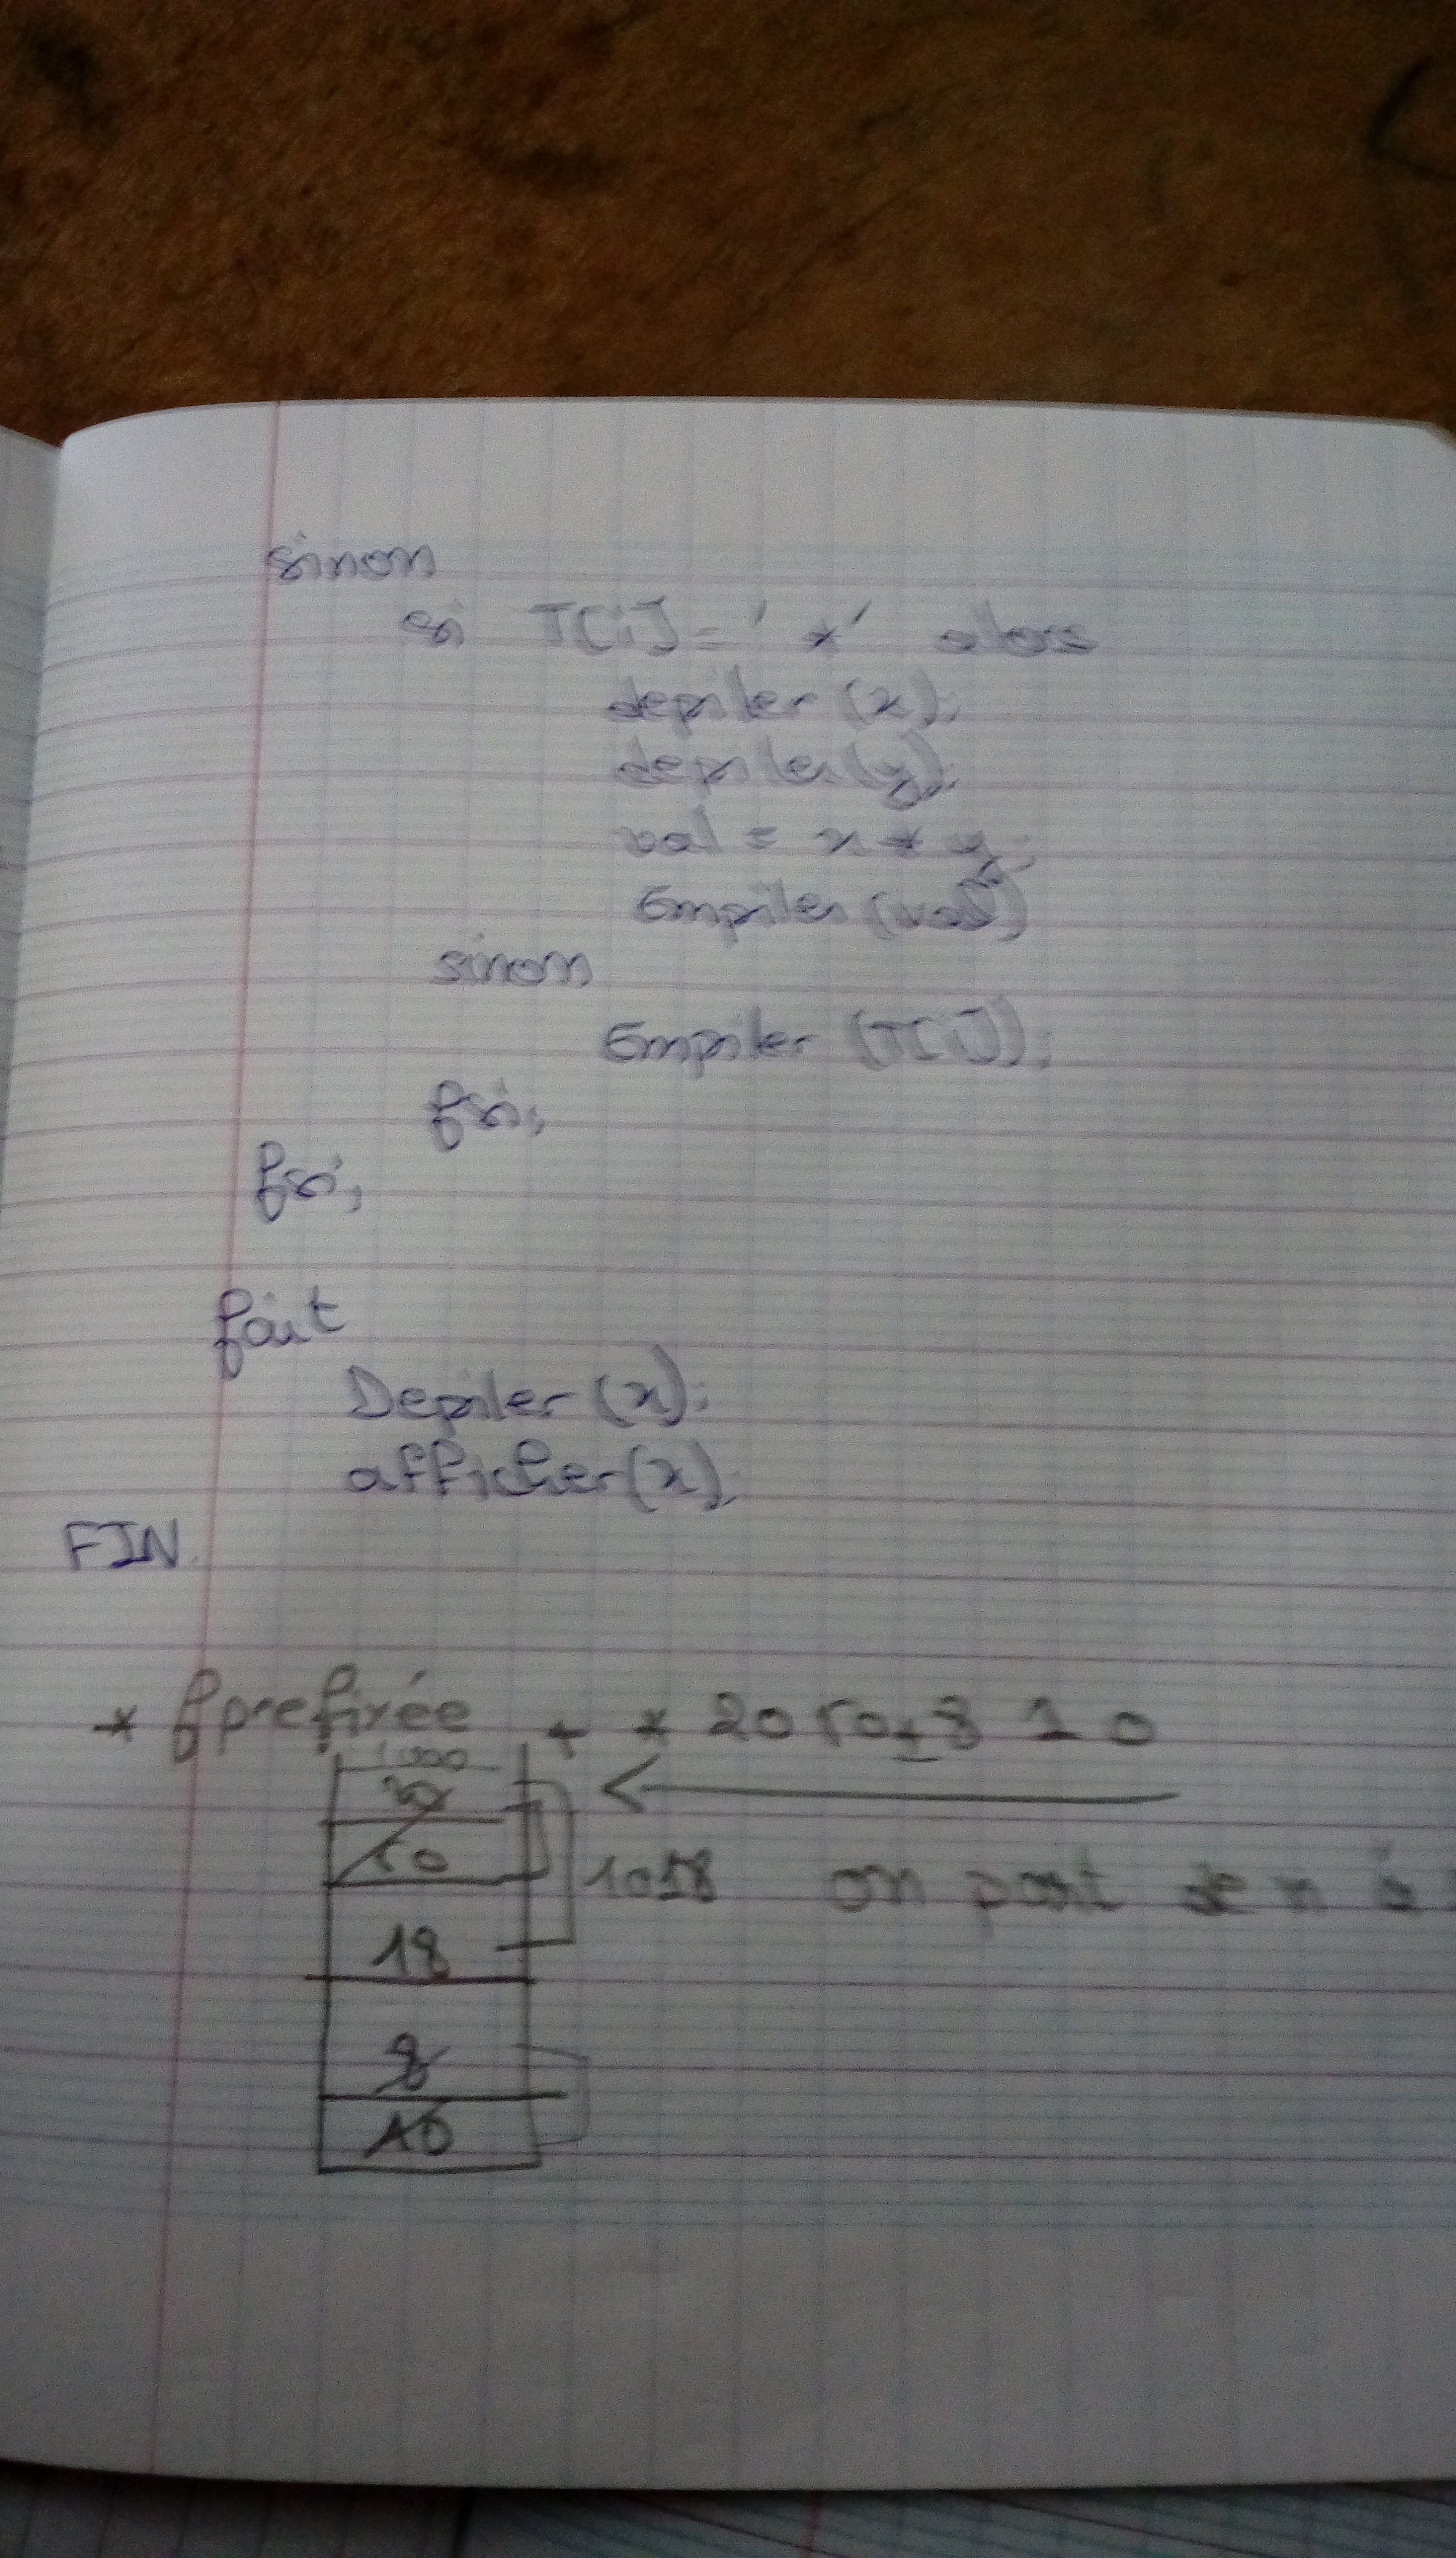 sinon
si T[i] = '*' alors
depiler (x);
depiler (y);
val = x * y;
Empiler (val)
sinon
Empiler (T[i]);
fsi;
fsi;
fait
Depiler (x);
afficher (x);
FIN.
* f prefixée + * 20 50 + 8 10
1000
20
50
1018 on part de n à
18
8
10